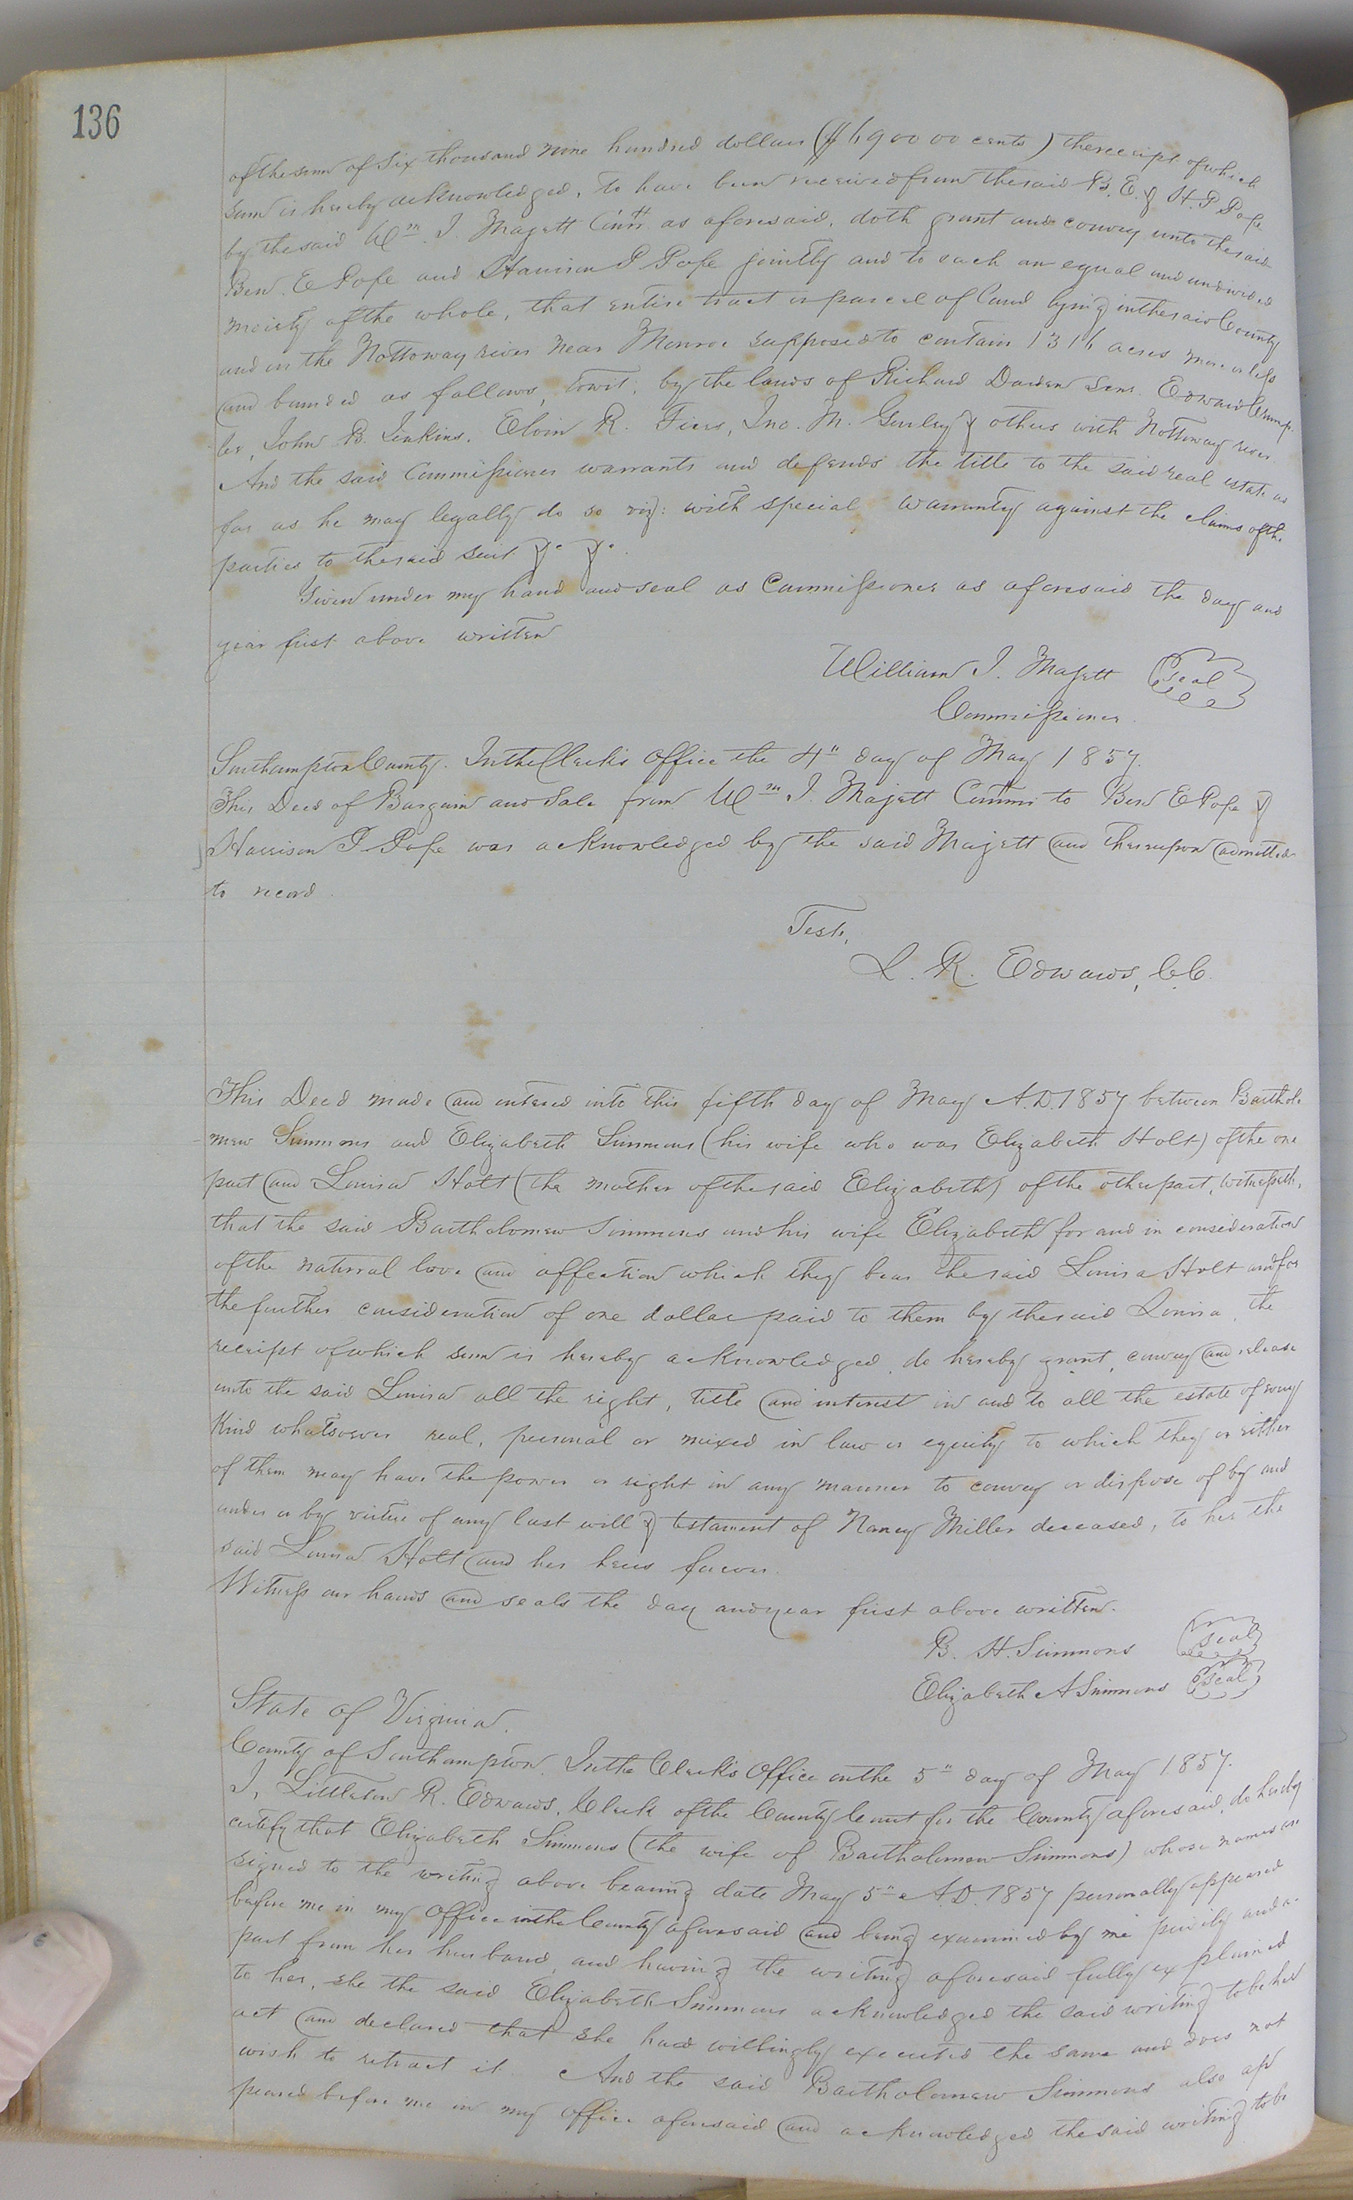 136
of the sum of Six thousand nine hundred dollars ($6900 00 cents) the receipt of which
sum is hereby acknowledged, to have been received from the said B. E. & H. P. Pope
by the said Wm. J. Majett Comr. as aforesaid, doth grant and convey unto the said
Ben. E Pope and Harrison P Pope jointly and to each an equal and undivided
moiety of the whole, that entire tract or parcel of land lying in the said County
and on the Nottoway river near Monroe supposed to contain 1316 acres more or less
and bounded as follows, towit; by the lands of Richard Darden Senr. Edward Crump-
ler, John B. Jenkins, R. Jno. M. Gurley & others with Nottoway river.
And the said Commissioner warrants and defends the title to the said real estate as
far as he may legally do so viz: with special warranty against the claims of the
parties to the said suit &c. &c.
Given under my hand and seal as Commissioner as aforesaid the day and
year first above written
William J. Majett Seal
Commissioner.
Southampton County. In the Clerk's Office the 4" day of May 1857.
This Deed of Bargain and Sale from Wm. J. Majett Commr to Ben E Pope &
Harrison P Pope was acknowledged by the said Majett and thereupon admitted
to record.
Teste,
L. R. Edwards, C.C.
This Deed made and entered into this fifth day of May A.D. 1857 between Bartholo
mew Simmons and Elizabeth Simmons (his wife who was Elizabeth Holt) of the one
part and Louisa Holt (the mother of the said Elizabeth) of the other part, witnesseth,
that the said Bartholomew Simmons and his wife Elizabeth for and in consideration
of the natural love and affection which they bear the said Louisa Holt and for
the further consideration of one dollar paid to them by the said Louisa, the
receipt of which sum is hereby acknowledged, do hereby grant, convey and release
unto the said Louisa all the right, title and interest in and to all the estate of every
kind whatsoever real, personal or mixed in law or equity to which they or either
of them may have the power or right in any manner to convey or dispose of by and
under or by virtue of any last will & testament of Nancy Miller deceased, to her the
said Louisa Holt and her heirs forever.
Witness our hands and seals the day and year first above written.
B. H. Simmons seal
Elizabeth A Simmons seal
State of Virginia.
County of Southampton. In the Clerk's Office on the 5" day of May 1857.
I, Littleton R. Edwards, Clerk of the County Court for the County aforesaid, do hereby
certify that Elizabeth Simmons (the wife of Bartholomew Simmons) whose names are
signed to the writing above bearing date May 5" A.D. 1857 personally appeared
before me in my Office in the County aforesaid and being examined by me privily and a-
part from her husband, and having the writing aforesaid fully explained
to her, she the said Elizabeth Simmons acknowledged the said writing to be her
act and declared that she had willingly executed the same and does not
wish to retract it And the said Bartholomew Simmons also ap
peared before me in my office aforesaid and acknowledged the said writing to be